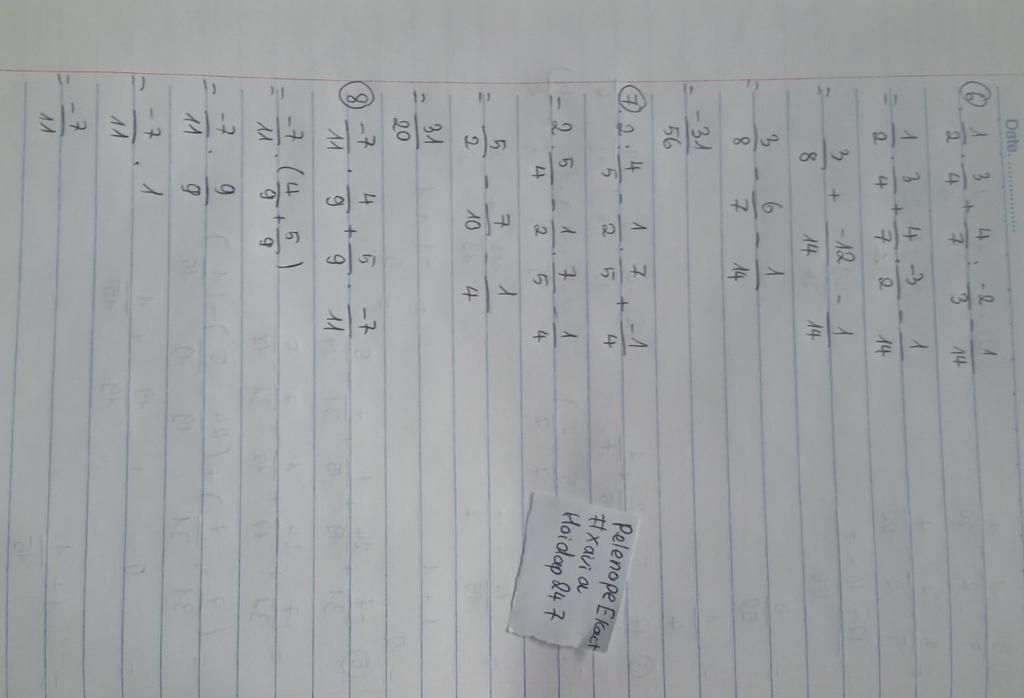 Date.
⑥ 1/2 . 3/4 + 4/7 : -2/3 - 1/14
= 1/2 . 3/4 + 4/7 . -3/2 - 1/14
= 3/8 + -12/14 - 1/14
= 3/8 - 6/7 - 1/14
= -31/56
⑦ 2 : 4/5 - 1/2 . 7/5 + -1/4
= 2 . 5/4 - 1/2 . 7/5 - 1/4
= 5/2 - 7/10 - 1/4
= 31/20
⑧ -7/11 . 4/9 + 5/9 . -7/11
= -7/11 . (4/9 + 5/9)
= -7/11 . 9/9
= -7/11 . 1
= -7/11
Pelenope Ekact
#xavia
Hoidap247